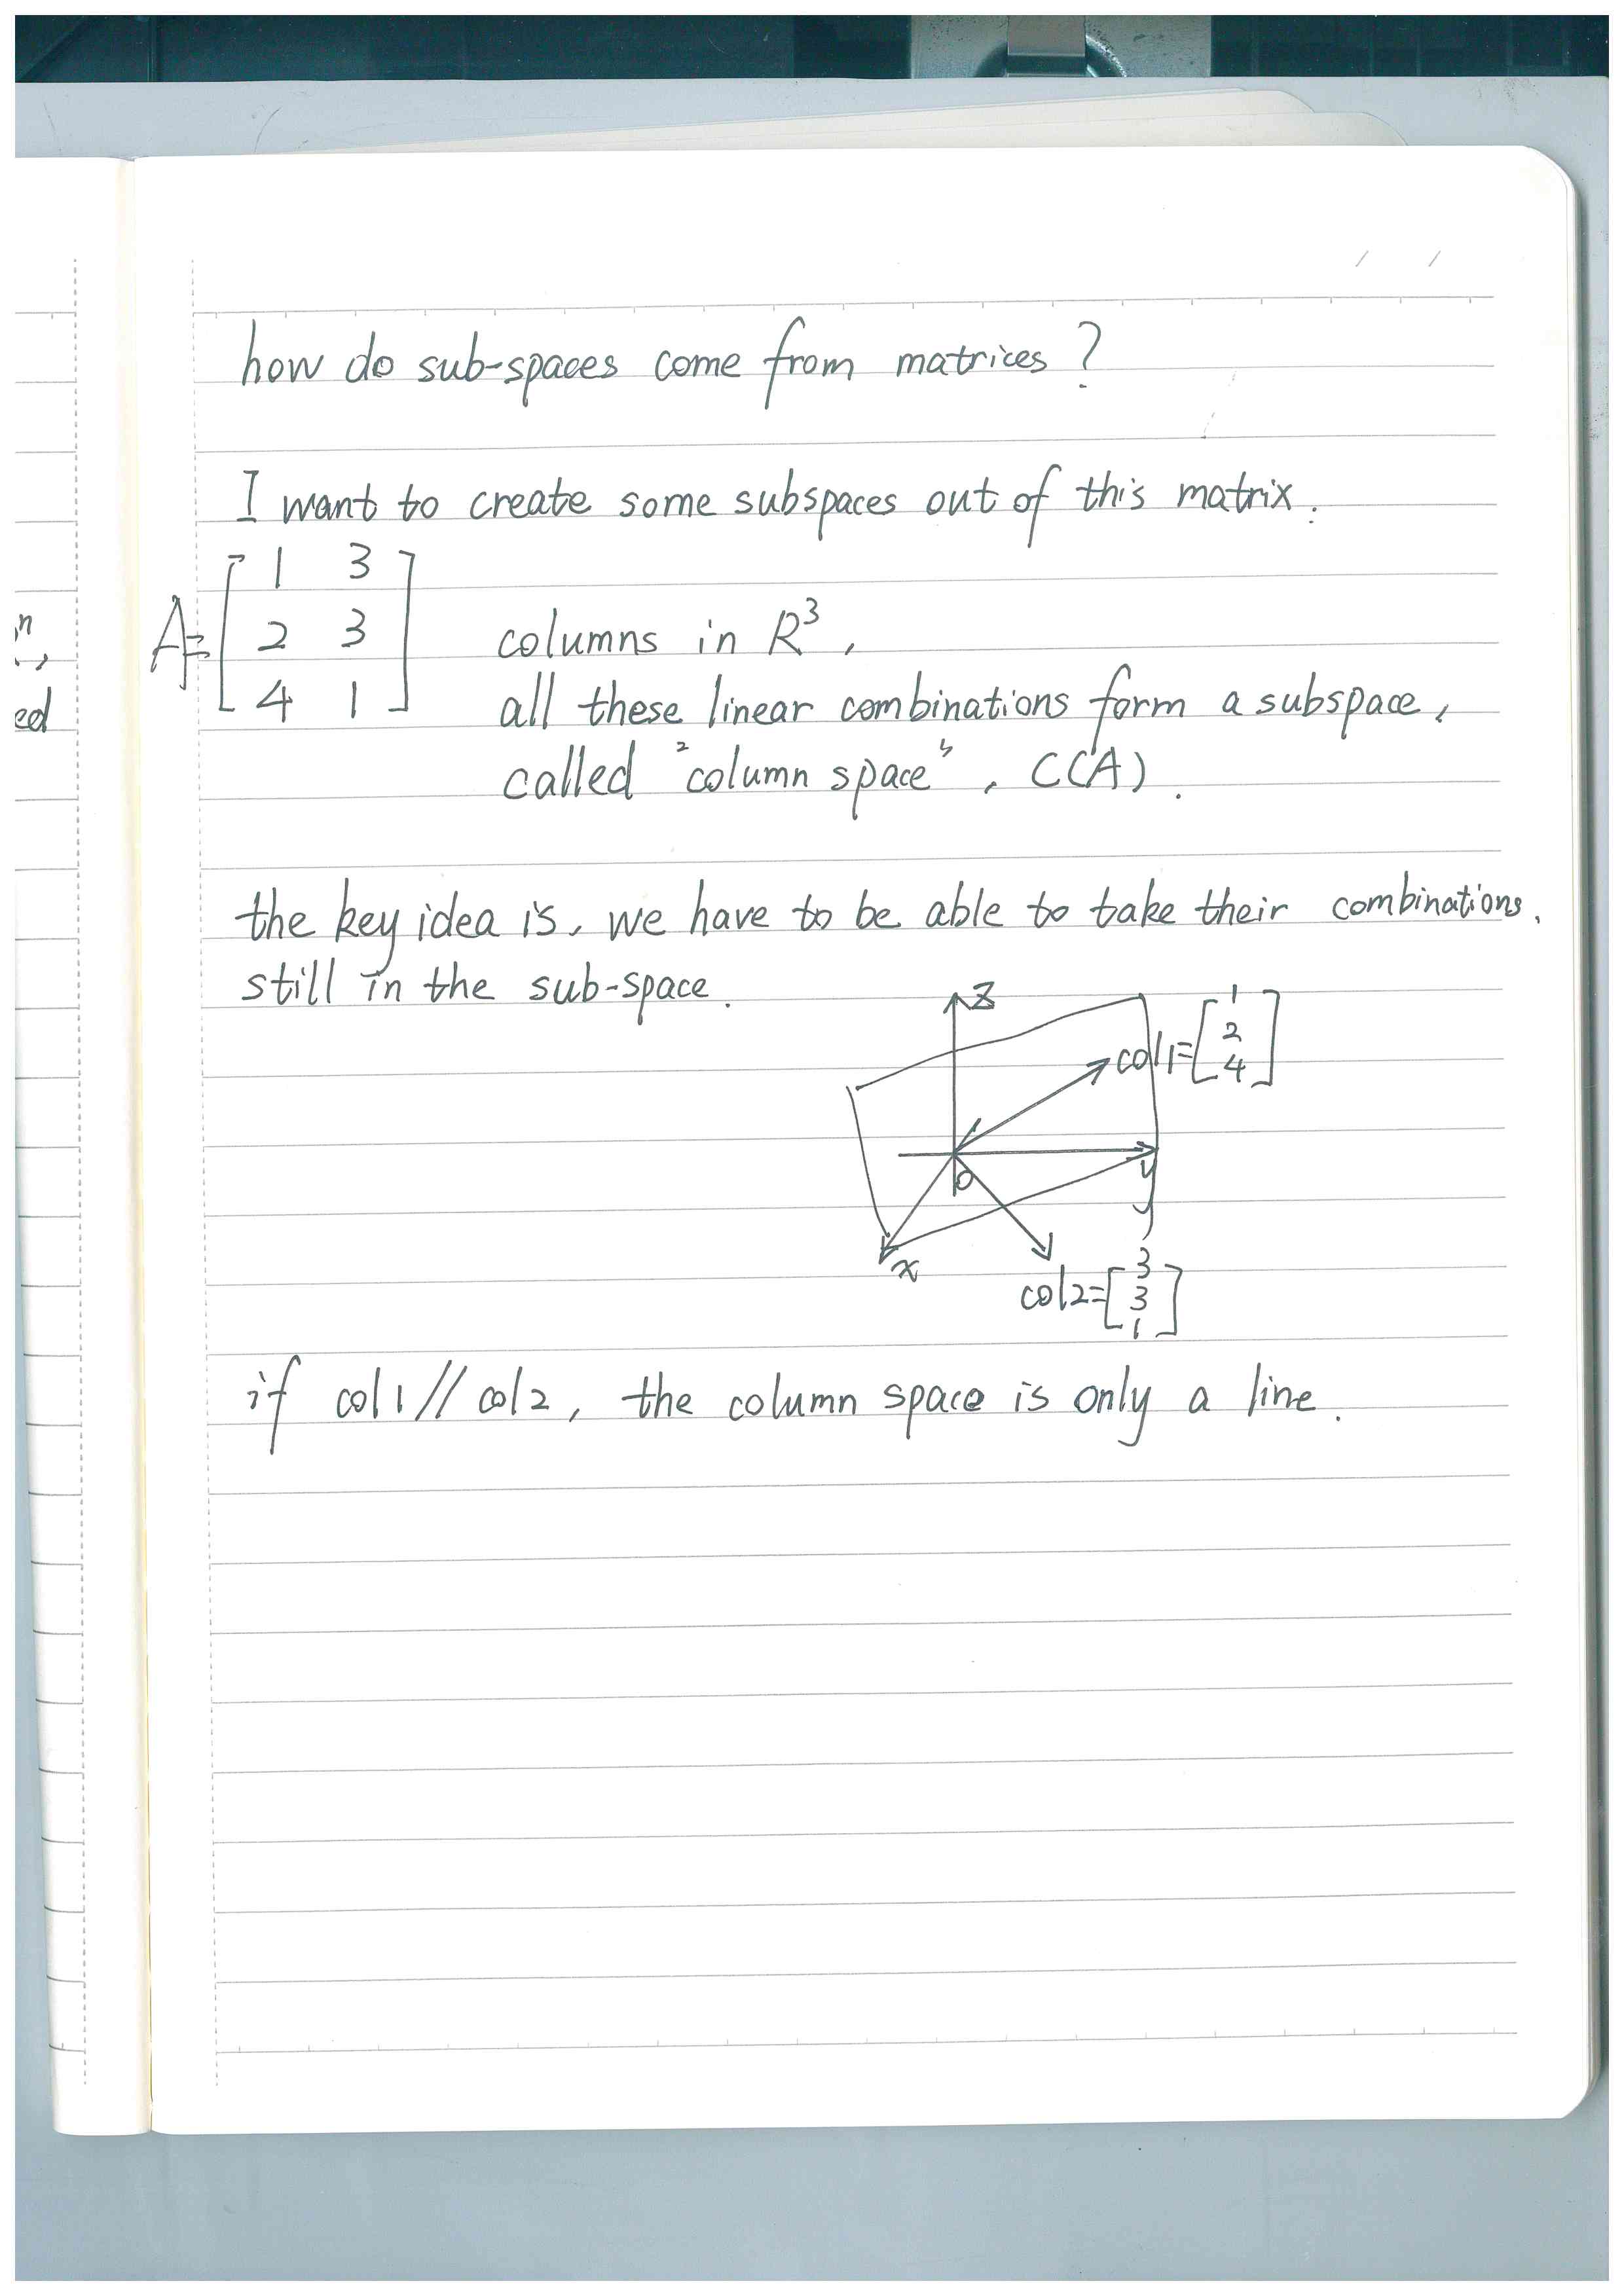 how do sub-spaces come from matrices?
I want to create some subspaces out of this matrix.
A= [ 1 3
2 3
4 1 ]
columns in R³,
all these linear combinations form a subspace,
called "column space", C(A).
the key idea is, we have to be able to take their combinations.
still in the sub-space.
z
col1= [ 1
2
4 ]
0
y
x
col2= [ 3
3
1 ]
if col1 // col2, the column space is only a line.
n
ed